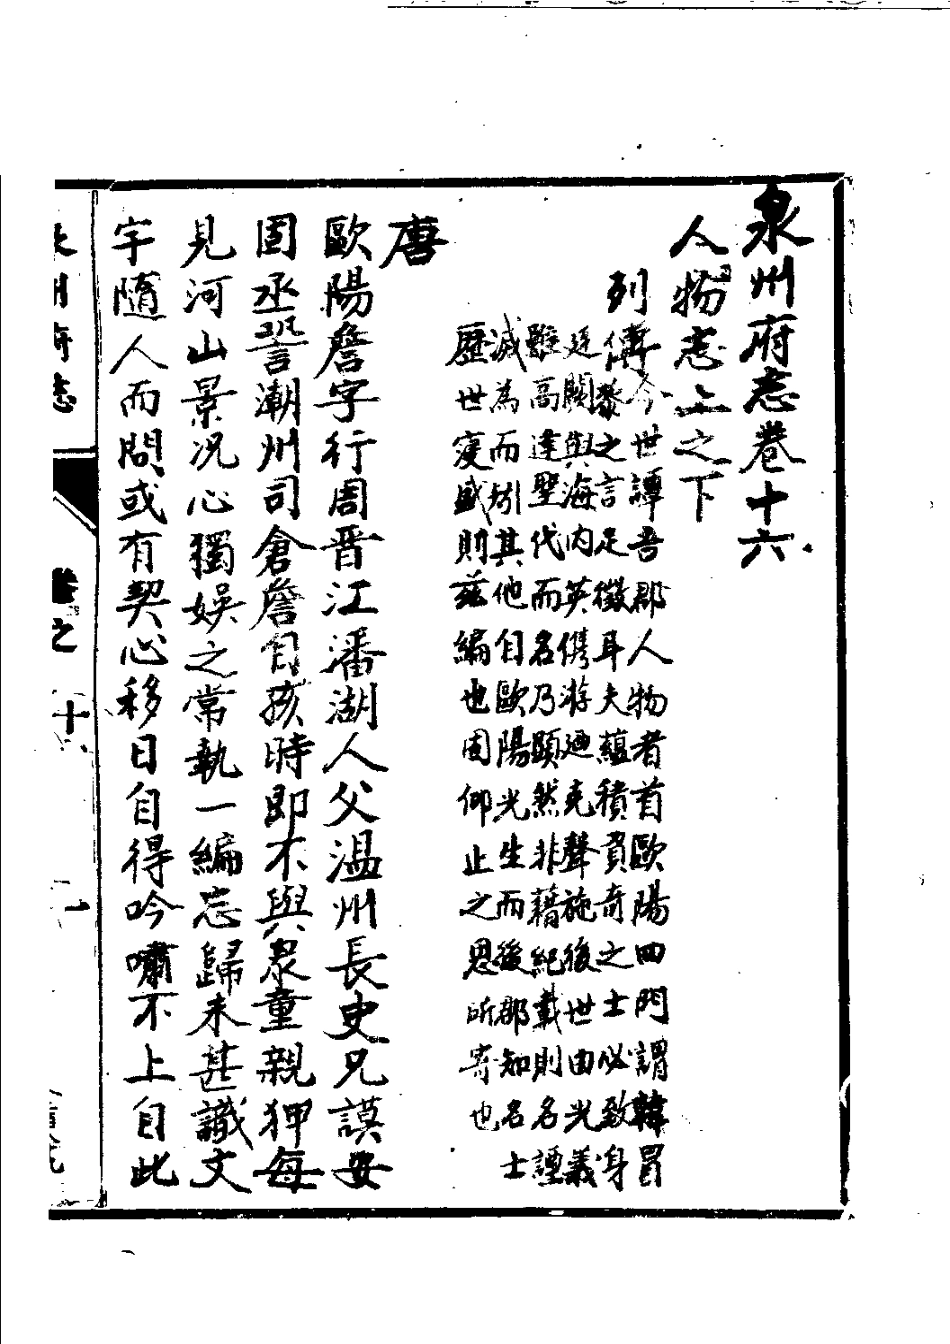 泉州府志卷十六
人物志上之下
列傳
今世譚吾郡人物者首歐陽四門謂韓昌
黎之言足徵耳夫蘊積賁奇之士必致身
廷闕與海內英儁游迺克聲施後世由光義
雖高達聖代而名乃顯然非藉紀載則名譁
滅為而㘬其他自歐陽光生而後郡知名士
歷世寖盛則茲編也固仰止之思所寄也
唐
歐陽詹字行周晋江潘湖人父温州長史兄謨安
固丞詧潮州司倉詹自孩時即不與衆童親狎每
見河山景况心獨娱之常執一編忘歸未甚識文
字隨人而問或有契心移日自得吟嘯不上自此
卷之十
一